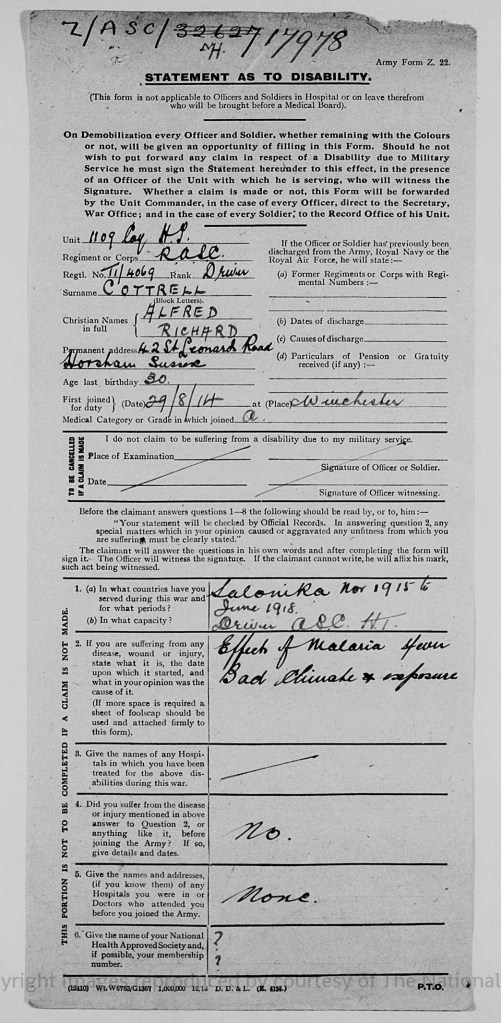 Z/ASC/ 32627 17978
Army Form Z. 22.
STATEMENT AS TO DISABILITY.
(This form is not applicable to Officers and Soldiers in Hospital or on leave therefrom
who will be brought before a Medical Board).
On Demobilization every Officer and Soldier, whether remaining with the Colours
or not, will be given an opportunity of filling in this Form. Should he not
wish to put forward any claim in respect of a Disability due to Military
Service he must sign the Statement hereunder to this effect, in the presence
of an Officer of the Unit with which he is serving, who will witness the
Signature. Whether a claim is made or not, this Form will be forwarded
by the Unit Commander, in the case of every Officer, direct to the Secretary,
War Office; and in the case of every Soldier, to the Record Office of his Unit.
Unit 1109 Coy H.T.
Regiment or Corps R.A.S.C.
Regtl. No. T1/4069 Rank Driver
Surname COTTRELL
(Block Letters).
Christian Names in full } ALFRED
RICHARD
Permanent address 42 St Leonards Road
Horsham Sussex
Age last birthday 30.
First joined for duty } (Date) 29/8/14 at (Place) Winchester
Medical Category or Grade in which joined A.
If the Officer or Soldier has previously been
discharged from the Army, Royal Navy or the
Royal Air Force, he will state:—
(a) Former Regiments or Corps with Regi-
mental Numbers :—
(b) Dates of discharge
(c) Causes of discharge
(d) Particulars of Pension or Gratuity
received (if any) :—
TO BE CANCELLED
IF A CLAIM IS MADE
I do not claim to be suffering from a disability due to my military service.
Place of Examination
Signature of Officer or Soldier.
Date
Signature of Officer witnessing.
Before the claimant answers questions 1—8 the following should be read by, or to, him :—
"Your statement will be checked by Official Records. In answering question 2, any
special matters which in your opinion caused or aggravated any unfitness from which you
are suffering must be clearly stated."
The claimant will answer the questions in his own words and after completing the form will
sign it. The Officer will witness the signature. If the claimant cannot write, he will affix his mark,
such act being witnessed.
THIS PORTION IS NOT TO BE COMPLETED IF A CLAIM IS NOT MADE.
1. (a) In what countries have you
served during this war and
for what periods ?
(b) In what capacity ?
Salonika Nov 1915 to
June 1918.
Driver ASC. H.T.
2. If you are suffering from any
disease, wound or injury,
state what it is, the date
upon which it started, and
what in your opinion was the
cause of it.
(If more space is required a
sheet of foolscap should be
used and attached firmly to
this form).
Effects of Malaria Fever
Bad Climate & exposure
3. Give the names of any Hospi-
tals in which you have been
treated for the above dis-
abilities during this war.
4. Did you suffer from the disease
or injury mentioned in above
answer to Question 2, or
anything like it, before
joining the Army? If so,
give details and dates.
No.
5. Give the names and addresses,
(if you know them) of any
Hospitals you were in or
Doctors who attended you
before you joined the Army.
None.
6. Give the name of your National
Health Approved Society and,
if possible, your membership
number.
?
?
yright Images reproduced by courtesy of The National
(12410) Wt. W6783/G1367 1,000,000 12/18 D. D. & L. (E. 4124.)
P.T.O.